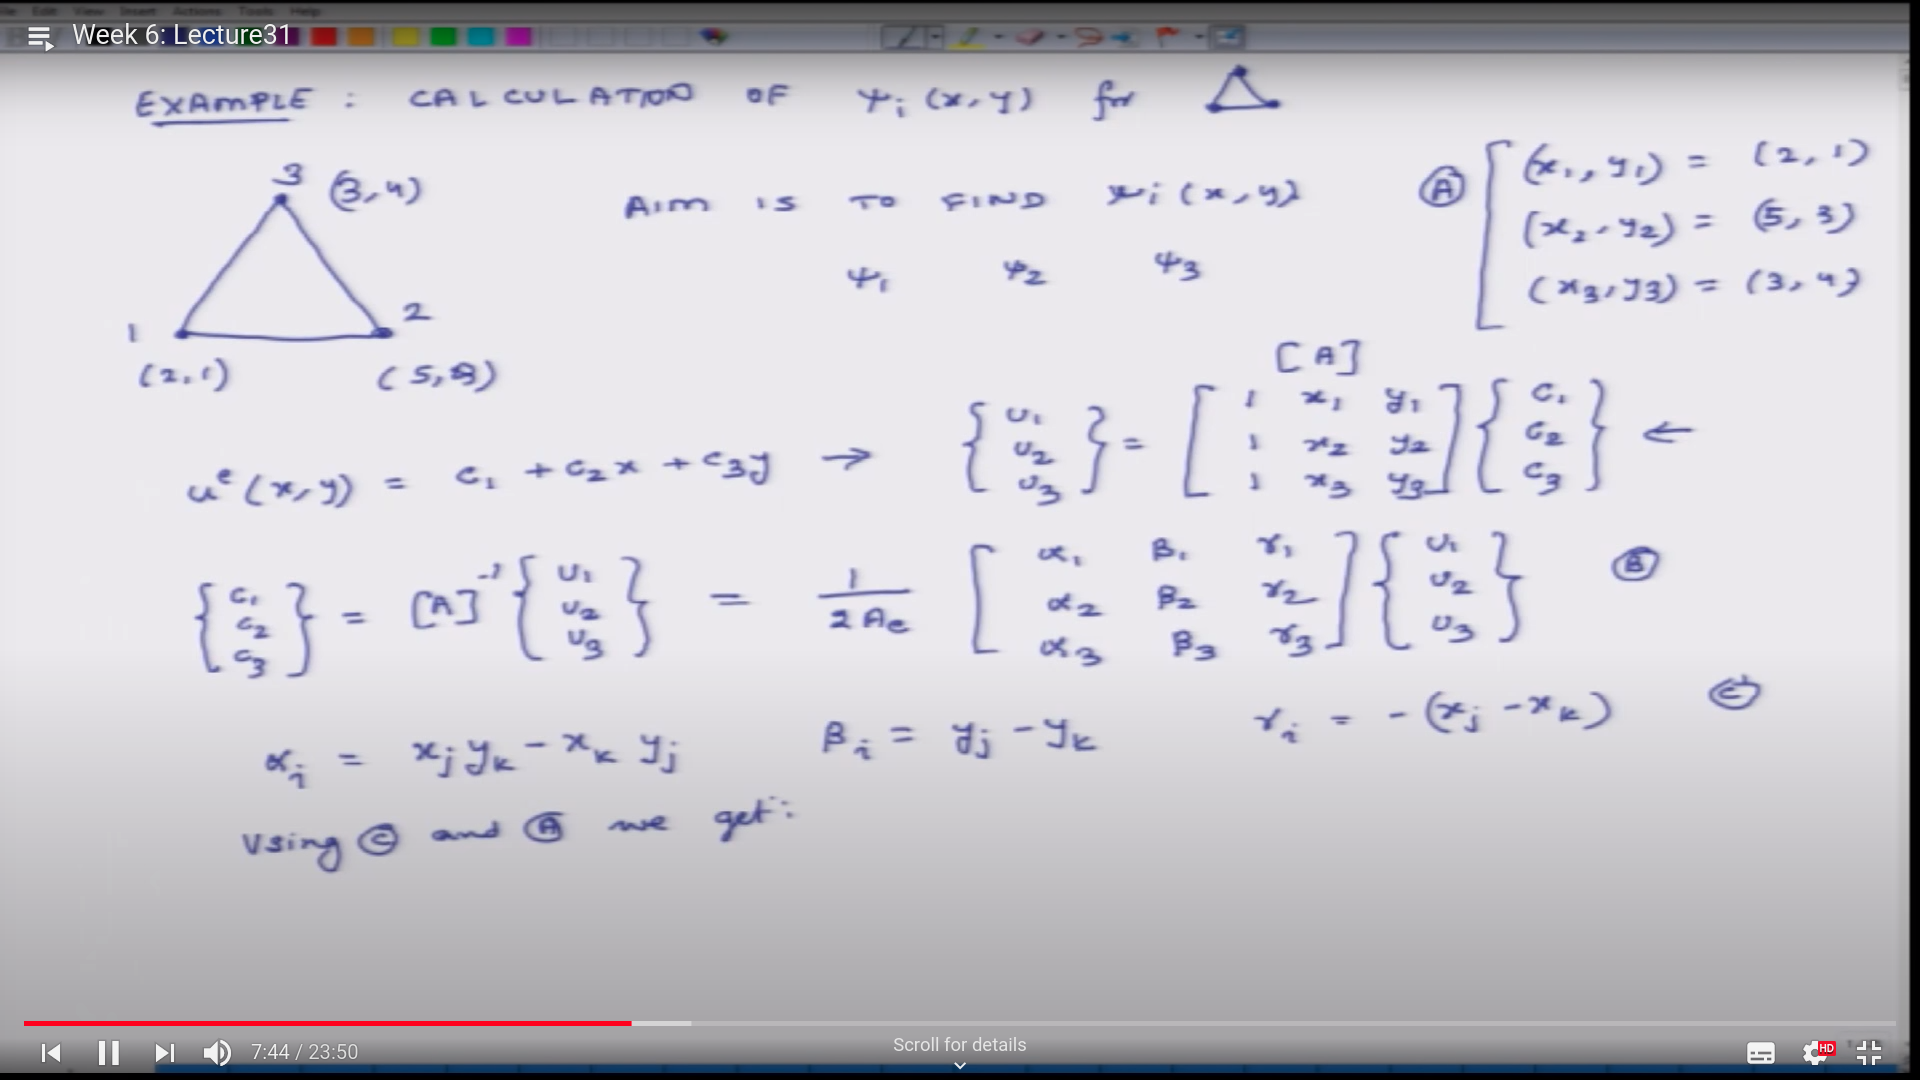 File Edit View Insert Actions Tools Help
Week 6: Lecture31
EXAMPLE : CALCULATION OF ψᵢ (x, y) for
3 (3, 4)
1 (2, 1)
2 (5, 3)
AIM IS TO FIND ψᵢ (x, y)
ψ₁ ψ₂ ψ₃
Ⓐ (x₁, y₁) = (2, 1)
(x₂, y₂) = (5, 3)
(x₃, y₃) = (3, 4)
[A]
uᵉ (x, y) = c₁ + c₂x + c₃y → {u₁ u₂ u₃} = [1 x₁ y₁ 1 x₂ y₂ 1 x₃ y₃] {c₁ c₂ c₃} ←
{c₁ c₂ c₃} = [A]⁻¹ {u₁ u₂ u₃} = 1/2Aₑ [α₁ β₁ γ₁ α₂ β₂ γ₂ α₃ β₃ γ₃] {u₁ u₂ u₃} Ⓑ
αᵢ = xⱼ yₖ - xₖ yⱼ βᵢ = yⱼ - yₖ γᵢ = - (xⱼ - xₖ) Ⓒ
Using Ⓒ and Ⓐ we get :
7:44 / 23:50
Scroll for details
HD